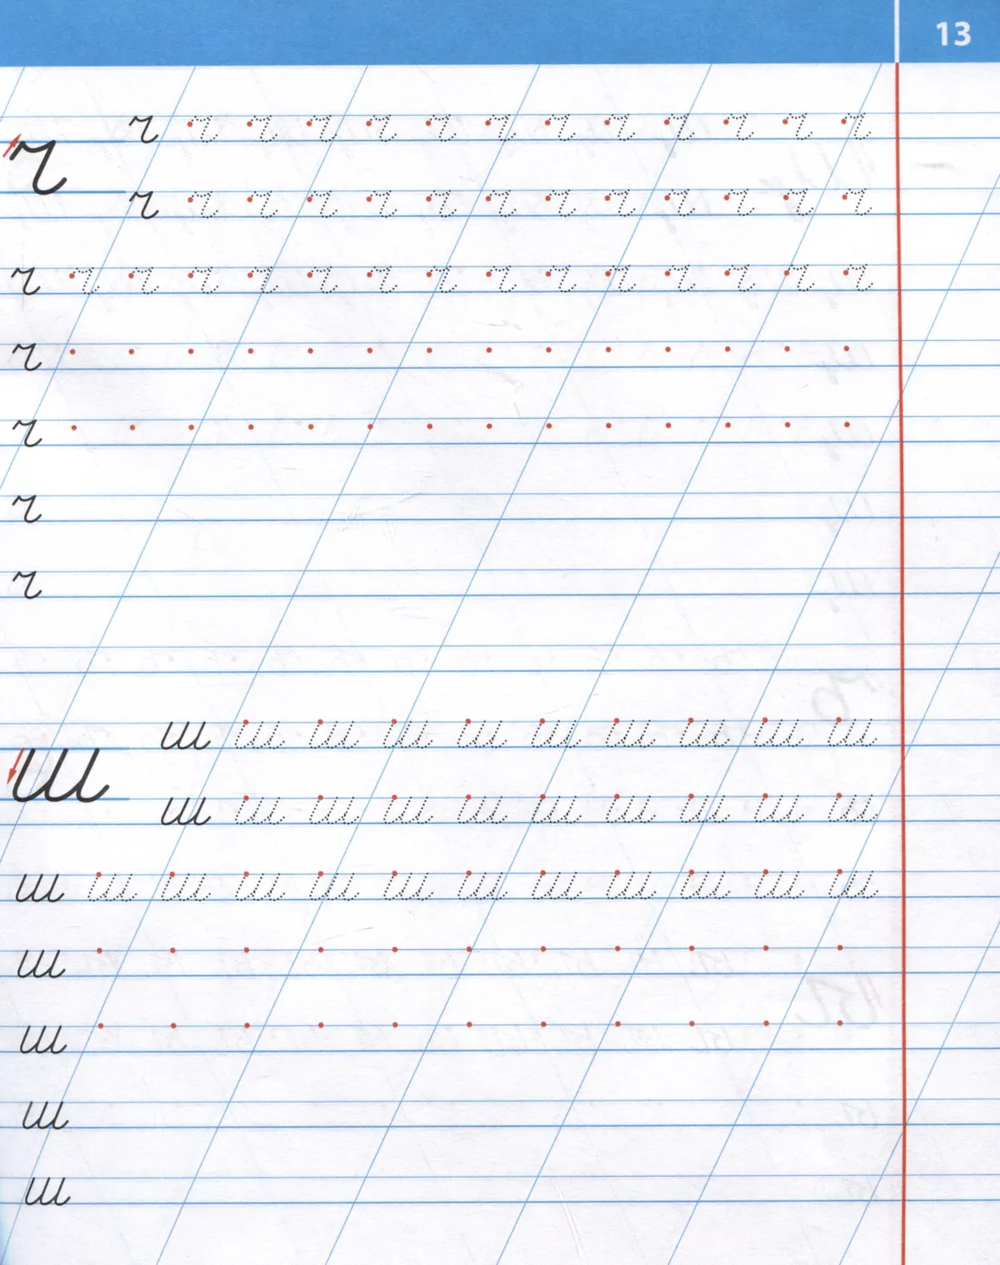 13
ч ч ч ч ч ч ч ч ч ч ч ч ч
ч
ч ч ч ч ч ч ч ч ч ч ч ч ч
ч ч ч ч ч ч ч ч ч ч ч ч ч ч ч
ч
ч
ч
ч
ш ш ш ш ш ш ш ш ш ш
ш
ш ш ш ш ш ш ш ш ш ш
ш ш ш ш ш ш ш ш ш ш ш ш
ш
ш
ш
ш